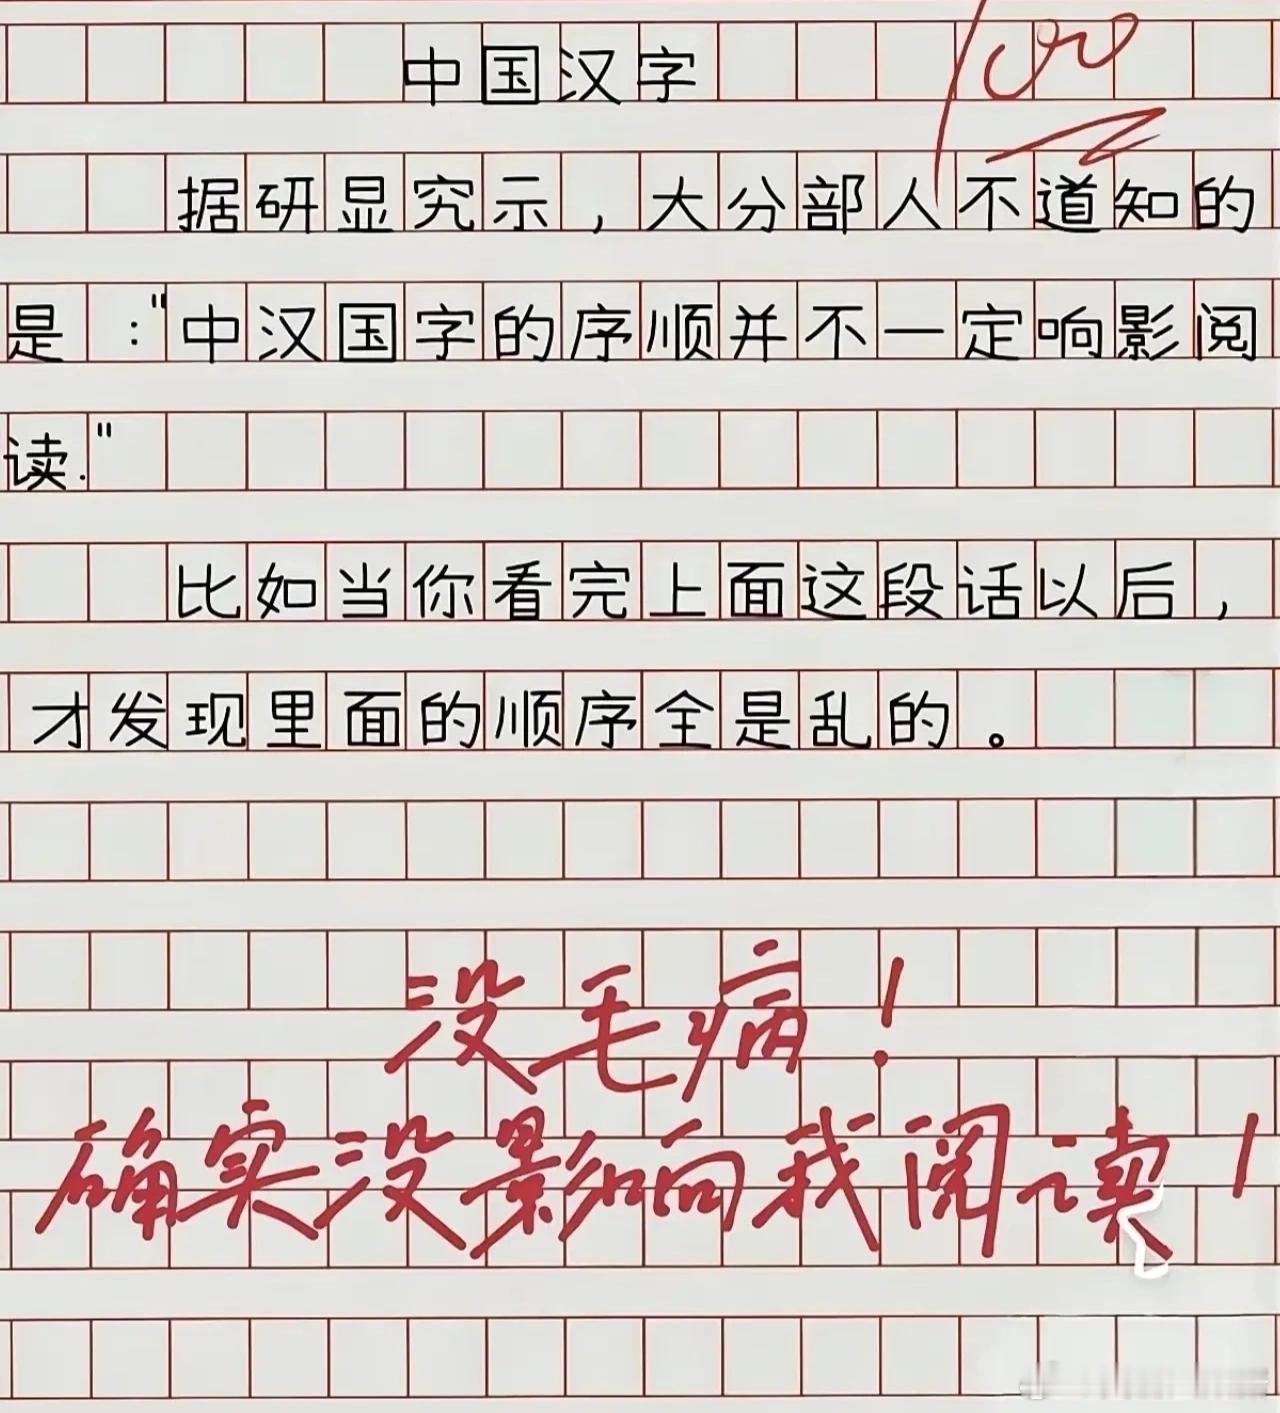 中国汉字
100
据研显究示，大分部人不道知的
是："中汉国字的序顺并不一定响影阅
读."
比如当你看完上面这段话以后，
才发现里面的顺序全是乱的。
没毛病！
确实没影响我阅读！